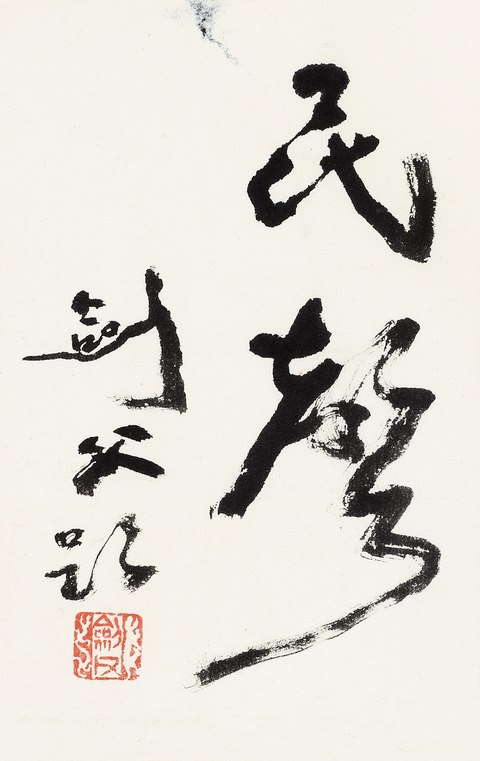 民聲
劍父題
劍父